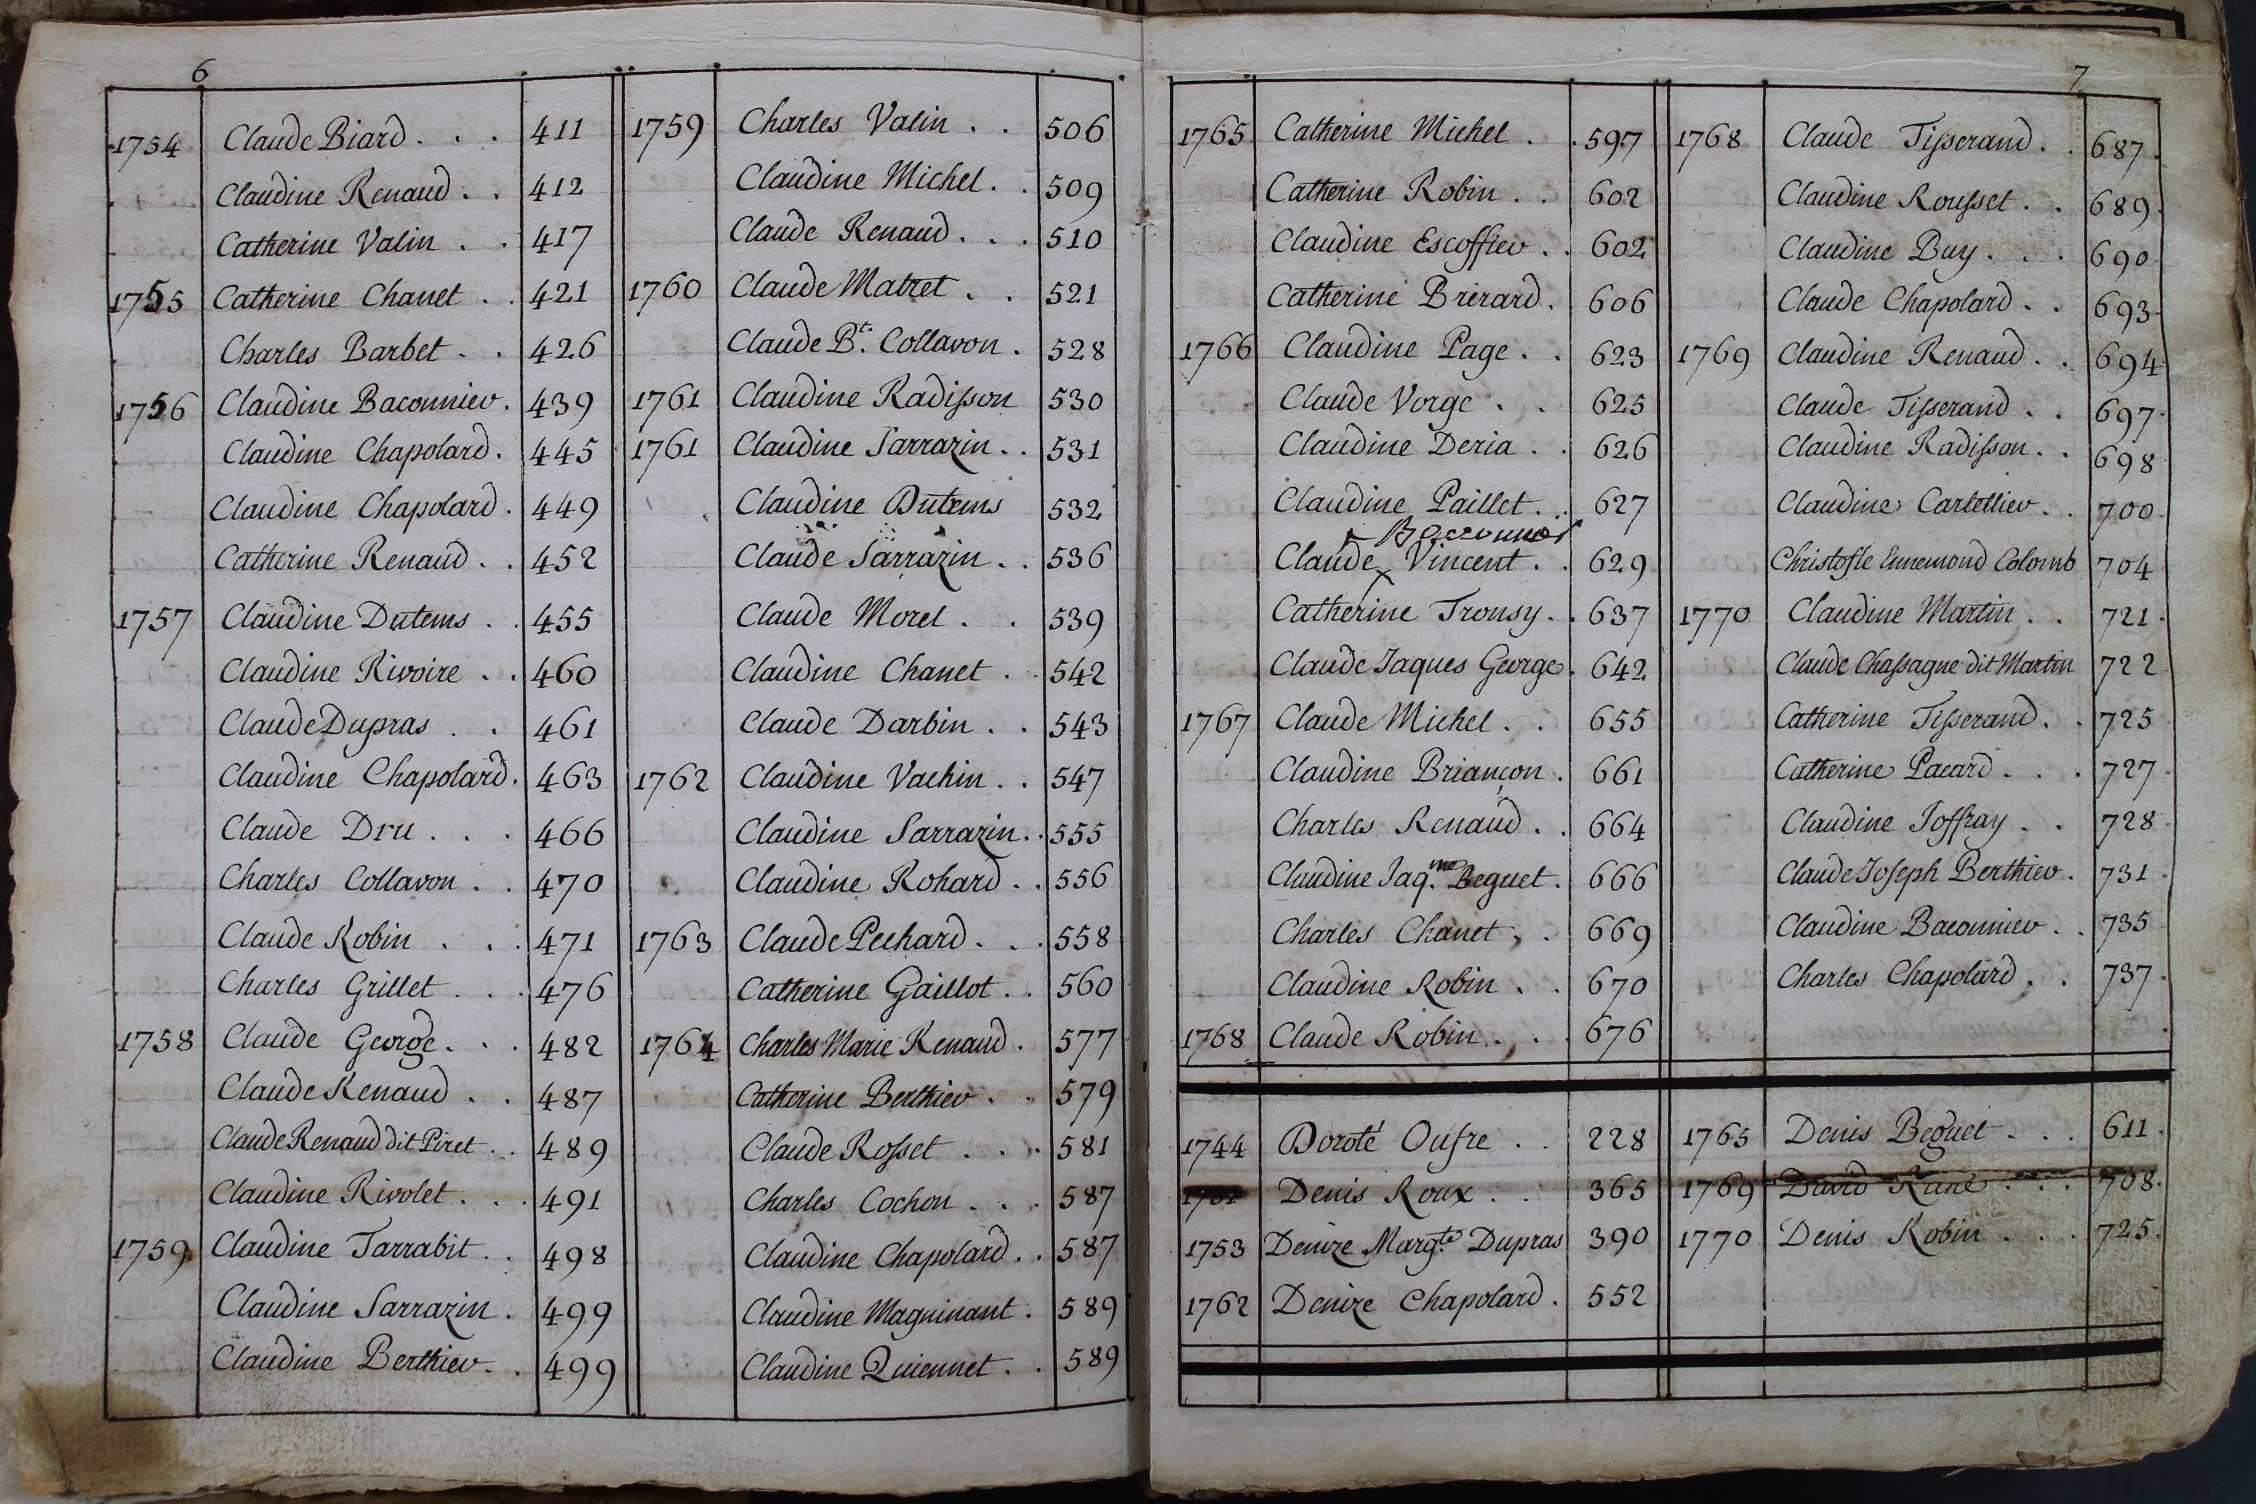 6
1754 Claude Biard . . . 411
Claudine Renaud . . 412
Catherine Valin . . 417
1755 Catherine Chanet . . 421
Charles Barbet . . 426
1756 Claudine Baconnier . 439
Claudine Chapolard . 445
Claudine Chapolard . 449
Catherine Renaud . . 452
1757 Claudine Dutems . . 455
Claudine Rivoire . . 460
Claude Dupras . . 461
Claudine Chapolard . 463
Claude Dru . . . 466
Charles Collavon . . 470
Claude Robin . . . 471
Charles Grillet . . . 476
1758 Claude George . . . 482
Claude Renaud . . 487
Claude Renaud dit Piret . . 489
Claudine Rivolet . . . 491
1759 Claudine Tarrabit . . 498
Claudine Sarrazin . 499
Claudine Berthier . . 499
1759 Charles Valin . . 506
Claudine Michel . . 509
Claude Renaud . . . 510
1760 Claude Matret . . 521
Claude Bt. Collavon . 528
1761 Claudine Radisson 530
1761 Claudine Sarrazin . . 531
Claudine Dutems 532
Claude Sarrazin . . 536
Claude Morel . . 539
Claudine Chanet . . 542
Claude Darbin . . 543
1762 Claudine Vachin . . 547
Claudine Sarrazin . . 555
Claudine Rohard . . 556
1763 Claude Pechard . . . 558
Catherine Gaillot . . 560
1764 Charles Marie Renaud . 577
Catherine Berthier . . 579
Claude Rosset . . . 581
Charles Cochon . . . 587
Claudine Chapolard . . 587
Claudine Magninant . 589
Claudine Quiennet . . 589
7
1765 Catherine Michel . . 597
Catherine Robin . . 602
Claudine Escoffier . . 602
Catherine Brérard . 606
1766 Claudine Page . . 623
Claude Vorge . . 625
Claudine Deria . . 626
Claudine Paillet . . 627
Baconnier
Claude Vincent . . 629
Catherine Tronsy . . 637
Claude Jaques George . 642
1767 Claude Michel . . 655
Claudine Briançon . 661
Charles Renaud . . 664
Claudine Jaq.me Beguet . 666
Charles Chanet . . 669
Claudine Robin . . 670
1768 Claude Robin . . . 676
1768 Claude Tisserand . . 687
Claudine Rousset . . 689
Claudine Buy . . . 690
Claude Chapolard . . 693
1769 Claudine Renaud . . 694
Claude Tisserand . . 697
Claudine Radisson . . 698
Claudine Cartellier . . 700
Christofle Ennemond Colomb 704
1770 Claudine Martin . . 721
Claude Chassagne dit Martin 722
Catherine Tisserand . . 725
Catherine Pacard . . . 727
Claudine Joffray . . 728
Claude Joseph Berthier . 731
Claudine Baconnier . . 735
Charles Chapolard . . 737
1744 Doroté Oufre . . 228
Denis Roux . . 365
1753 Denize Marg.te Dupras 390
1762 Denize Chapolard . 552
1765 Denis Beguet . . . 611
1769 David . . . 708
1770 Denis Robin . . . 725